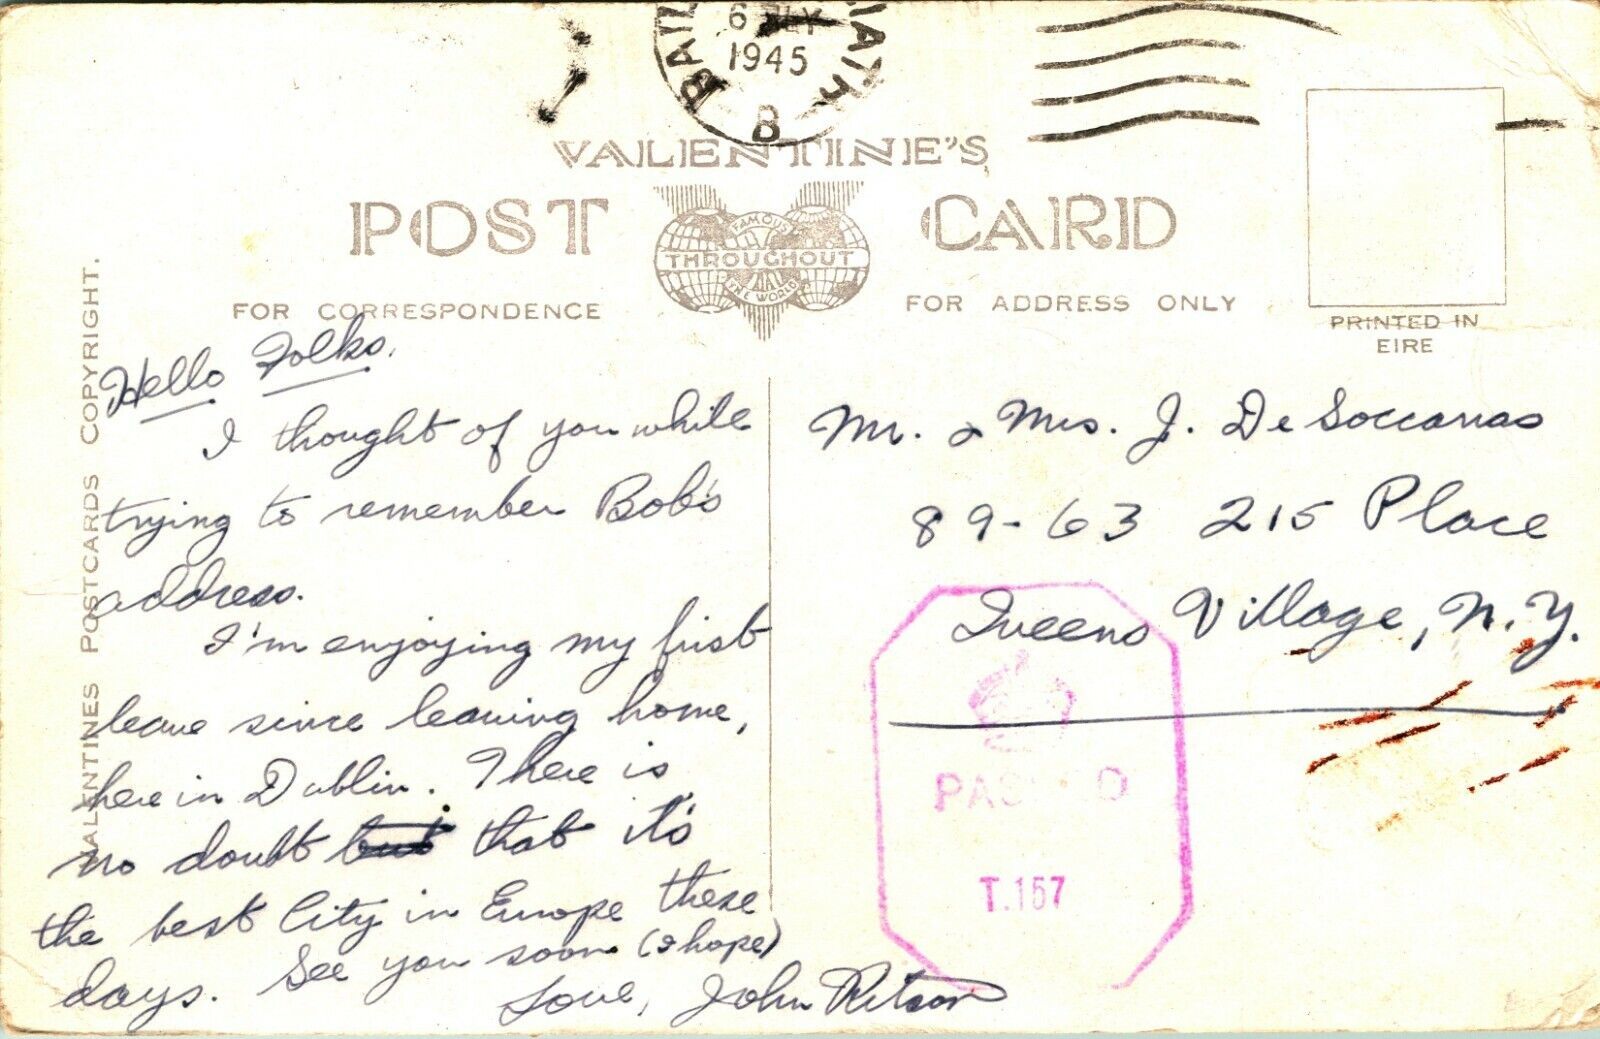 6 JLY
1945
B
VALENTINE'S
POST CARD
FAMOUS
THROUGHOUT
THE WORLD
FOR CORRESPONDENCE
FOR ADDRESS ONLY
PRINTED IN
EIRE
VALENTINES POSTCARDS COPYRIGHT.
Hello Folks,
I thought of you while
trying to remember Bob's
address.
I'm enjoying my first
leave since leaving home,
here in Dublin. There is
no doubt but that it's
the best City in Europe these
days. See you soon (I hope)
Love, John Ritson
Mr. & Mrs. J. De Soccarras
89-63 215 Place
Queens Village, N.Y.
PASSED
T.157